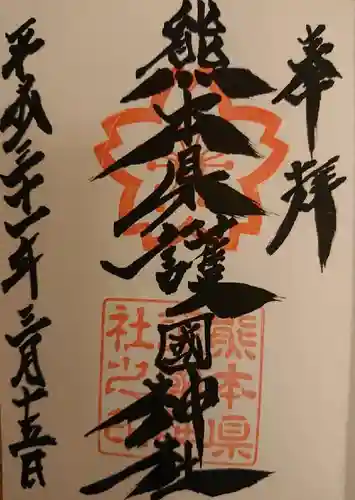 奉拝
熊本県護國神社
熊本県
護國神
社之印
平成三十一年三月十五日